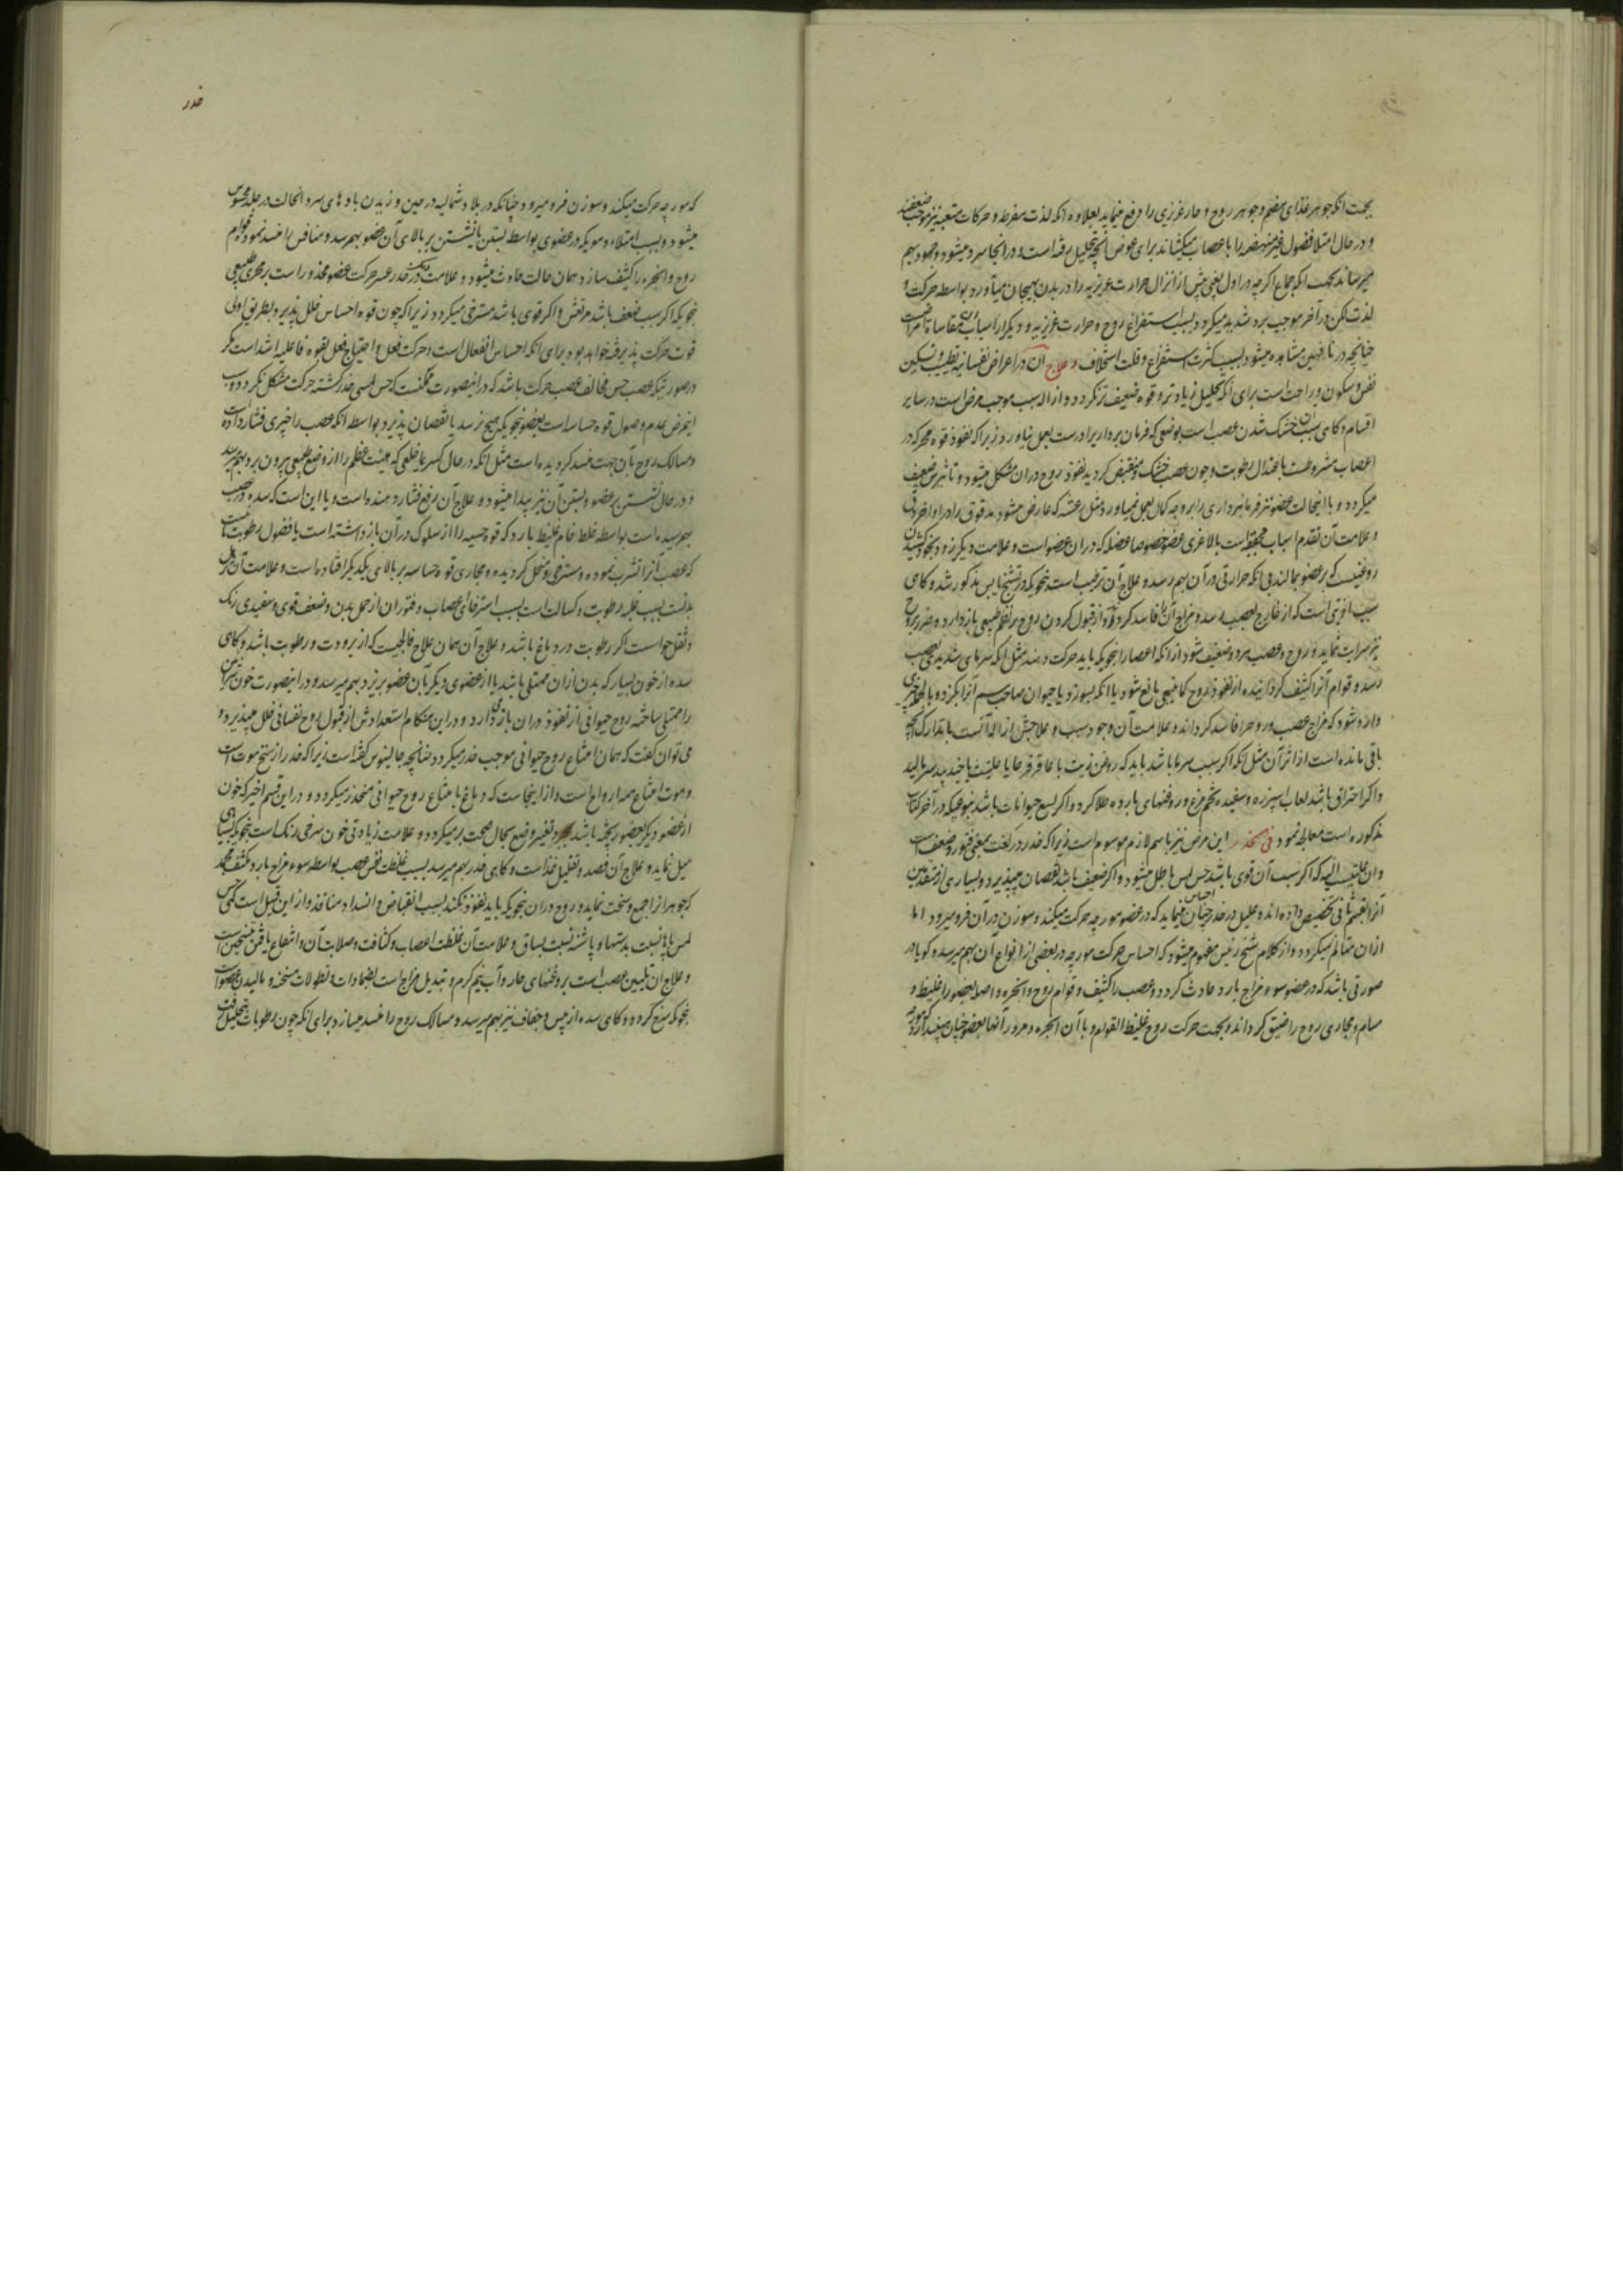 بجهت انکه جوهر غذای هضم و جوهر روح و حار غریزی را دفع مینماید بعلاوه انکه لذت مفرط و حرکات متعبه نیز موجب ضعف
و در حال امتلا فضول غیر منهضم را باعصاب میکشاند برای عوض انچه تحلیل رفته است و در انجا سرد میشود و جمود بهم
میرساند بجهت انکه جماع اکرچه در اول یعنی پیش از انزال حرارت غریزیه را در بدن بهیجان میآورد بواسطه حرکت و
لذت لکن در آخر موجب برد شدید میکردد بسبب استفراغ روح و حرارت غریزیه و دیکر از اسباب
چنانچه در ناقهین مشاهده میشود بسبب کثرت استفراغ و قلت استخلاف و علاج ان در اعراض نفسانیه تطییب و تسکین
نفس و سکون و راحت است برای انکه تحلیل زیادتر و قوه ضعیف تر نکردد و ازاله سبب موجب مرض است در سایر
اقسام و کاهی سبب ان خشک شدن عصب است بوضعی که فرمان برداریرا درست بعمل نیاورد زیرا که نفوذ قوه محرکه در
اعصاب مشروطست باعتدال رطوبت و چون عصب خشک و منقبض کردید نفوذ روح در ان مشکل میشود و تاثیرش ضعیف
میکردد و با اینحالت عضو نیز فرمانبرداری را بر وجه کمال بعمل نمیاورد مثل رعشه که عارض میشود مدقوق را در اواخر دق
و علامت آن تقدم اسباب مجففه است با لاغری عضو خصوصا عضله که در ان عضو است و علامت دیکر زود بخود کشیدن
روغنیست که بر عضو بمالند بی انکه حرارتی در آن بهم رسد و علاج آن ترطیب است بنحویکه در تشنج یابس مذکور شد و کاهی
سبب آفتی است که از خارج بعصب رسد و مزاج آن را فاسد کرداند و از قبول کردن روح بر نظم طبیعی باز دارد و ضرر بروح
نیز سرایت نماید و روح و عصب هر دو ضعیف شود از انکه اعصار ابنحویکه باید حرکت دهند مثل انکه سرمای شدید بعصب
رسد و قوام آنرا کثیف کرداند از نفوذ روح کما ینبغی مانع شود یا انکه بسوزد یا حیوان صاحب سم آنرا بکزد و بالجمله چیزی
وارد شود که مزاج عصب و روح را فاسد کرداند و علامت آن وجود سبب و علاجش ازاله آنست با تدارک انچه
باقی مانده است از اثر آن مثل انکه اکر سبب سرما باشد باید که روغن زیت با عاقرقرحا یا حلتیت یا جندبیدستر بمالید
و اکر احتراق باشد لعاب اسپرزه و سفیده تخم مرغ و روغنهای بارده طلا کرد و اکر لسع حیوانات باشد بنوعیکه در آخر کتاب
مذکوره است معالجه نمود فی الخدر این مرض نیز باسم لازم موسوم است زیرا که خدر در لغت بمعنی فتور و ضعف است
وان علتیست المیه که اکر سبب آن قوی باشد حس لمس باطل میشود و اکر ضعیف باشد نقصان میپذیرد و بسیاری از متقدمین
آنرا بقسم ثانی تخصیص داده اند و علیل در خدر احساس چنان مینماید که در عضو مورچه حرکت میکند و سوزن در آن فرو میرود اما
ازان متالم نمیکردد و از کلام شیخ رئیس مفهوم میشود که احساس حرکت مورچه در بعضی از انواع آن بهم میرسد و کویا در
صورتی باشد که در عضو سوء مزاج بارد حادث کردد و عصب را کثیف و قوام روح و انجره واصله بعضو را غلیظ و
مسام و مجاری روح را ضیق کرداند و بجهت حرکت روح غلیظ القوام و با آن ابخره و مرور آنها بعضو چنان میپندارد
خدر
که مورچه حرکت میکند و سوزن فرو میرود چنانکه در بلاد شمالیه در حین وزیدن بادهای سرد انحالت در جلد محسوس
میشود و بسبب امتلاء دمویکه در عضوی بواسطه بستن یا نشستن بر بالای آن عضو بهم رسد و منافس را منسد نمود و قوام
روح و ابخره را کثیف سازد همان حالت حادث میشود و علامت دیکر خدر عسر حرکت عضو مخدور است بر مجری طبیعی
بنحویکه اکر سبب ضعیف باشد مرتعش و اکر قوی باشد مسترخی میکردد زیرا که چون قوه احساس خلل پذیرد بطریق اولی
قوت حرکت پذیرفته خواهد بود برای انکه احساس انفعال است و حرکت فعل و احتیاج فعل بقوه فاعلیه اشد است مکر
در صورتیکه عصب حس مخالف عصب حرکت باشد که در اینصورت ممکنست که حس لمسی خدر کشته حرکت مشکل نکردد و سبب
اینمرض عدم وصول قوه حساسه است بعضو بنحویکه هیچ نرسد یا نقصان پذیرد بواسطه انکه عصب را چیزی فشار داده
و مسالک روح بآن جهت منسد کردیده است مثل انکه در حال کسر یا خلعی که هیئت عظم را از وضع طبیعی بیرون برد بهم رسد
و در حال نشستن بر عضو و بستن آن نیز پیدا میشود و علاج آن رفع فشار دهنده است و یا این است که سده در عصب
بهم رسیده است بواسطه خلط خام غلیظ بارد که قوه حسیه را از سلوک در آن باز داشته است یا فضول رطوبتیست
که عصب انرا تشرب نموده و مسترخی و منحل کردیده و مجاری قوه حساسه بر بالای یکدیکر افتاده است و علامت آن ترهل
بدنست بسبب غلبه رطوبت و کسالت است بسبب استرخای اعصاب و فتوران از حمل بدن و ضعف قوی و سفیدی رنک
و ثقل حواست اکر رطوبت در دماغ باشد و علاج آن همان علاج فالجیست که از برودت و رطوبت باشد و کاهی
سده از خون بسیار که بدن ازان ممتلی باشد یا از عضوی دیکر بآن عضو بریزد بهم میرسد و در اینصورت خون شریان
را ممتلی ساخته روح حیوانی از نفوذ در ان باز میدارد و در این هنکام استعدادش از قبول روح نفسانی خلل میپذیرد و
می توان کفت که همان امتناع روح حیوانی موجب خدر میکردد چنانچه جالینوس کفته است زیرا که خدر از سنخ موت است
و موت امتناع همه ارواح است و از اینجاست که دماغ با امتناع روح حیوانی منخدر میکردد و در این قسم اخیر که خون
از عضو دیکر بعضو ریخته باشد بمجرد تغییر وضع بحال صحت بر میکردد و علامت زیادتی خون سرخی رنک است بنحویکه بسیاهی
میل نماید و علاج آن فصد و تقلیل غذاست و کاهی خدر بهم میرسد بسبب غلظت نفس عصب بواسطه سوء مزاج بارد مکثف مجمد
که جوهر انرا جمع و سخت نماید و روح دران بنحویکه باید نفوذ نکند بسبب انقباض و انسداد منافذ و از این قبیل است کمی حس
لمس پا نسبت بدستها و پاشنه نسبت بساق و علامت آن غلظت اعصاب و کثافت و صلابت آن و انتفاع یافتن بتسخین است
و علاج ان تلیین عصب است بروغنهای حار و آب نیم کرم و تبدیل مزاج است بضمادات و نطولات مسخنه و مالیدن عضو است
بنحویکه سرخ کردد و کاهی سده از یبس و جفاف نیز بهم میرسد و مسالک روح را منسد میسازد برای انکه چون رطوبات بتحلیل رفت